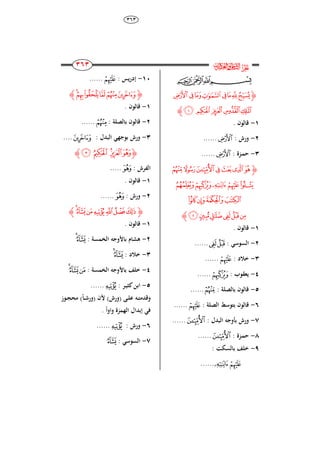 ٣٦٣
٣٦٣
﴿ يُسَبِّحُ لِلَّهِ مَا فِي ٱلسَّمَٰوَٰتِ وَمَا فِي ٱلۡأَرۡضِ
ٱلۡمَلِكِ ٱلۡقُدُّوسِ ٱلۡعَزِيزِ ٱلۡحَكِيمِ ﴿١﴾
١- قالون .
٢- ورش : ٱلۡأَرۡضِ ......
٣- حمزة : ٱلۡأَرۡضِ ......
﴿ هُوَ ٱلَّذِي بَعَثَ فِي ٱلۡأُمِّيِّـۧنَ رَسُولٗا مِّنۡهُمۡ
يَتۡلُواْ عَلَيۡهِمۡ ءَايَٰتِهِۦ وَيُزَكِّيهِمۡ وَيُعَلِّمُهُمُ
ٱلۡكِتَٰبَ وَٱلۡحِكۡمَةَ وَإِن كَانُواْ
مِن قَبۡلُ لَفِي ضَلَٰلٖ مُّبِينٖ ﴿٢﴾
١- قالون .
٢- السوسي : قَبۡلُ لَفِي ......
٣- خلاد : عَلَيۡهُمۡ ......
٤- يعقوب : وَيُزَكِّيهُمۡ ......
٥- قالون بالصلة : مِّنۡهُمُۥ ......
٦- قالون بتوسط الصلة : عَلَيۡهِمُۥ ......
٧- ورش بأوجه البدل : ٱلۡأُمِّيِّـۧنَ ......
٨- حمزة : ٱلۡأُمِّيِّـۧنَ ......
٩- خلف بالسكت :
عَلَيۡهُمۡ ءَايَٰتِهِۦ ......
١٠- إدريس : عَلَيۡهِمۡ ......
﴿ وَءَاخَرِينَ مِنۡهُمۡ لَمَّا يَلۡحَقُواْ بِهِمۡ ﴾
١- قالون .
٢- قالون بالصلة : مِنۡهُمُۥ ......
٣- ورش بوجهي البدل : وَءَاخَرِينَ ....
﴿ وَهُوَ ٱلۡعَزِيزُ ٱلۡحَكِيمُ ﴿٣﴾
الفرش : وَهُوَ .....
١- قالون .
٢- ورش : وَهُوَ ......
﴿ ذَٰلِكَ فَضۡلُ ٱللَّهِ يُؤۡتِيهِ مَن يَشَآءُ ﴾
١- قالون .
٢- هشام بالأوجه الخمسة : يَشَآءُ
٣- خلاد : يَشَآءُ
٤- خلف بالأوجه الخمسة : مَن يَشَآءُ
٥- ابن كثير : يُؤۡتِيهِۦ ......
وقدمته على (ورش) لأن (ورشاً) محجوز
في إبدال الهمزة واواً .
٦- ورش : يُوتِيهِ ......
٧- السوسي : يَشَآءُ